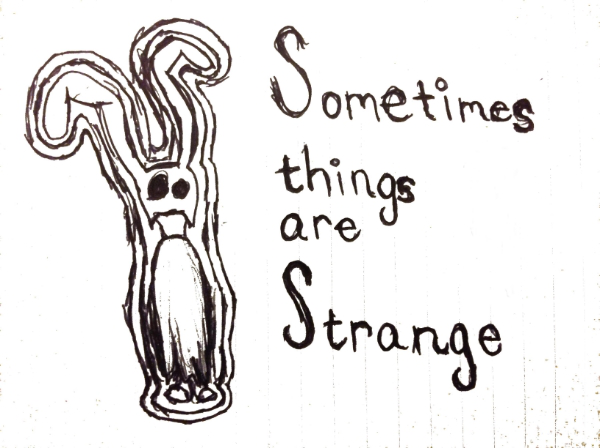 Sometimes
things
are
Strange